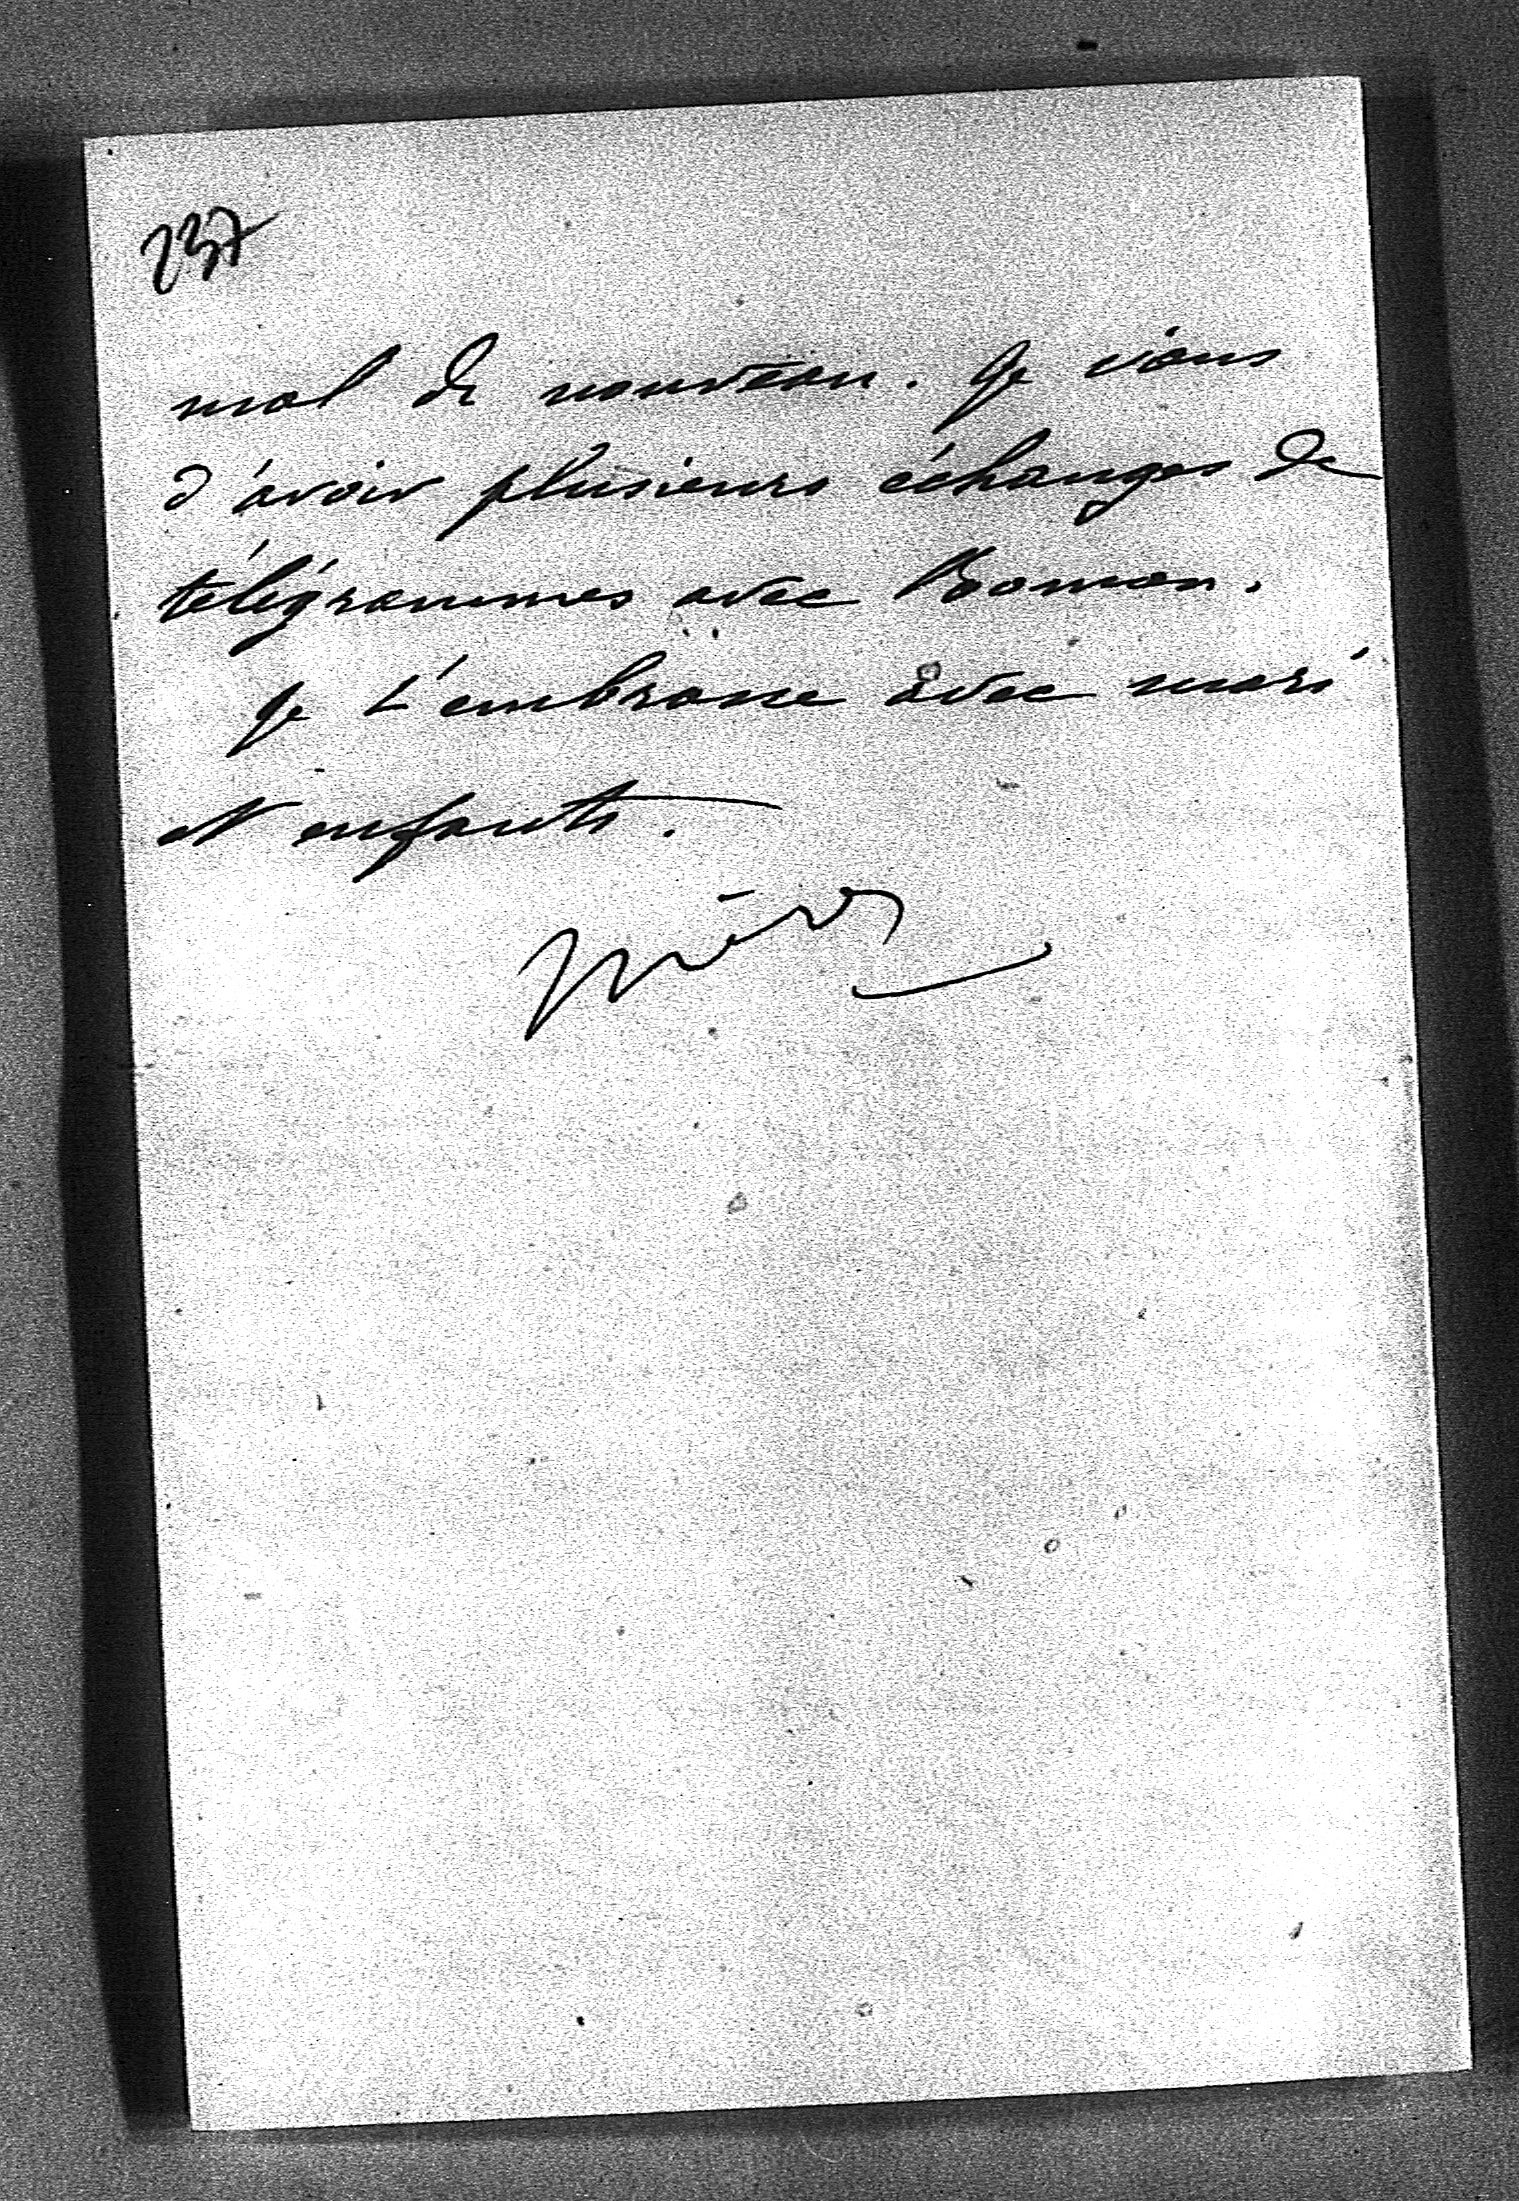 237
mal de nouveau. Je viens
d'avoir plusieurs échanges de
télégrammes avec Roman.
Je t'embrasse avec mari
et enfants.